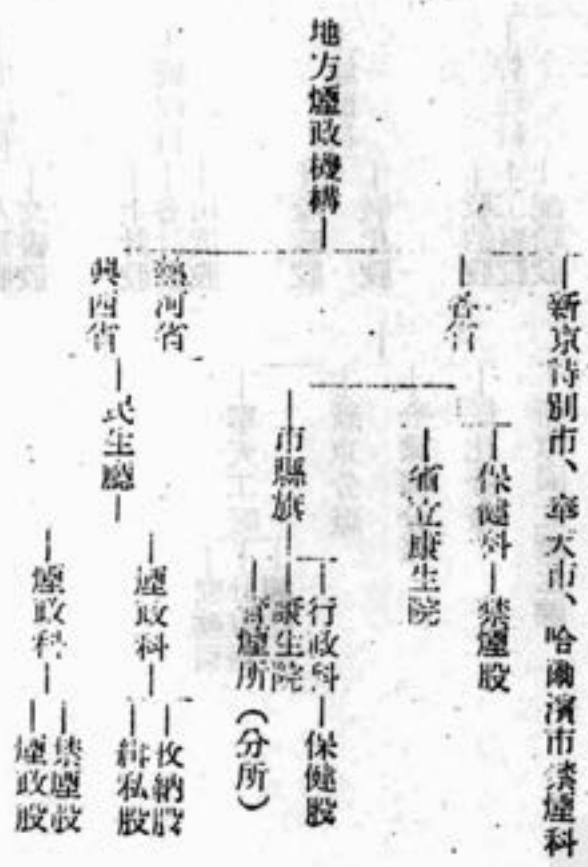 地方煙政機構
新京特別市、奉天市、哈爾濱市禁煙科
各省
保健科
禁煙股
省立康生院
市縣旗
行政科
保健股
康生院
管煙所（分所）
熱河省
興西省
民生廳
煙政科
收納股
緝私股
煙政科
禁煙股
煙政股